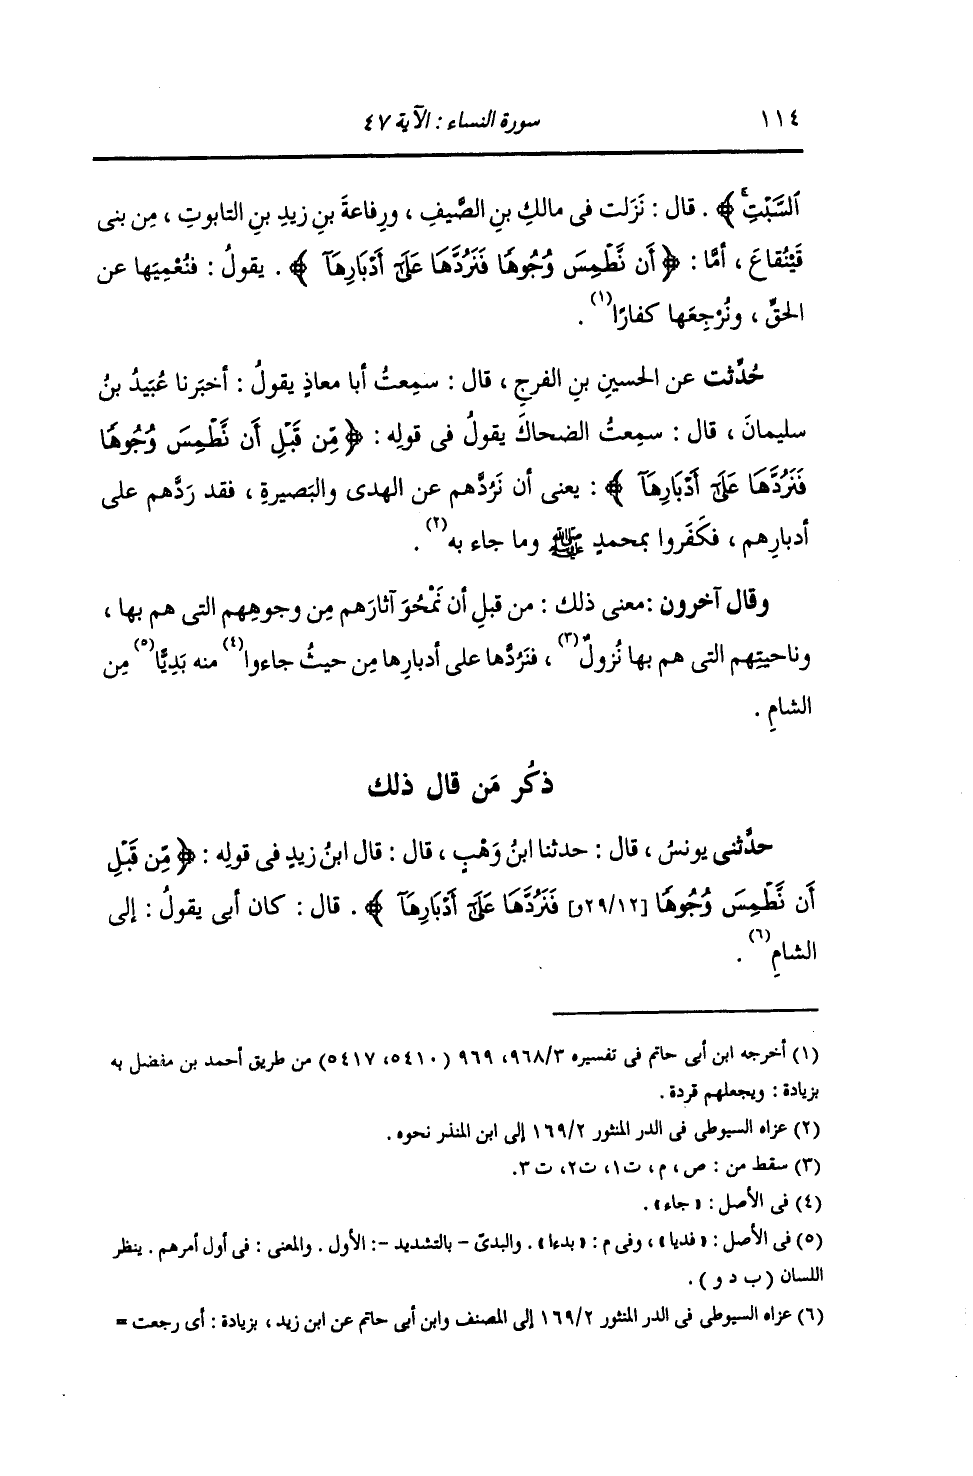 ١١٤
سورة النساء : الآية ٤٧
ٱلسَّبْتِۚ ﴾ . قال : نَزَلت فى مالكِ بنِ الصَّيفِ ، ورِفاعةَ بنِ زيدِ بنِ التابوتِ ، مِن بنى
قَيْنُقاعَ ، أمَّا : ﴿ أَن نَّطْمِسَ وُجُوهًا فَنَرُدَّهَا عَلَىٰٓ أَدْبَارِهَآ ﴾ . يقولُ : فنُعْمِيَها عن
الحقِّ ، ونُرْجِعَها كفارًا(١) .
حُدِّثت عن الحسينِ بنِ الفرجِ ، قال : سمِعتُ أبا معاذٍ يقولُ : أخبَرنا عُبَيدُ بنُ
سليمانَ ، قال : سمِعتُ الضحاكَ يقولُ فى قولِه : ﴿ مِّن قَبْلِ أَن نَّطْمِسَ وُجُوهًا
فَنَرُدَّهَا عَلَىٰٓ أَدْبَارِهَآ ﴾ : يعنى أن نَرُدَّهم عن الهدى والبَصيرةِ ، فقد رَدَّهم على
أدبارِهم ، فكَفَروا بمحمدٍ ﷺ وما جاء به(٢) .
وقال آخرون :معنى ذلك : من قبلِ أن نَمْحُوَ آثارَهم مِن وجوهِهم التى هم بها ،
وناحيتِهم التى هم بها نُزولٌ(٣) ، فنَرُدَّها على أدبارِها مِن حيثُ جاءوا(٤) منه بَدِيًّا(٥) مِن
الشامِ .
ذكرُ مَن قال ذلك
حدَّثنى يونسُ ، قال : حدثنا ابنُ وَهْبٍ ، قال : قال ابنُ زيدٍ فى قولِه : ﴿ مِّن قَبْلِ
أَن نَّطْمِسَ وُجُوهًا [٢٩/١٢و] فَنَرُدَّهَا عَلَىٰٓ أَدْبَارِهَآ ﴾ . قال : كان أبى يقولُ : إلى
الشامِ(٦) .
(١) أخرجه ابن أبى حاتم فى تفسيره ٩٦٨/٣، ٩٦٩ (٥٤١٠، ٥٤١٧) من طريق أحمد بن مفضل به
بزيادة : ويجعلهم قردة .
(٢) عزاه السيوطى فى الدر المنثور ١٦٩/٢ إلى ابن المنذر نحوه .
(٣) سقط من : ص ، م ، ت١، ت٢، ت ٣.
(٤) فى الأصل : « جاء » .
(٥) فى الأصل : « فديا » ، وفى م : « بدءا » . والبدىّ - بالتشديد -: الأول . والمعنى : فى أول أمرهم . ينظر
اللسان (ب د و) .
(٦) عزاه السيوطى فى الدر المنثور ١٦٩/٢ إلى المصنف وابن أبى حاتم عن ابن زيد ، بزيادة : أى رجعت =